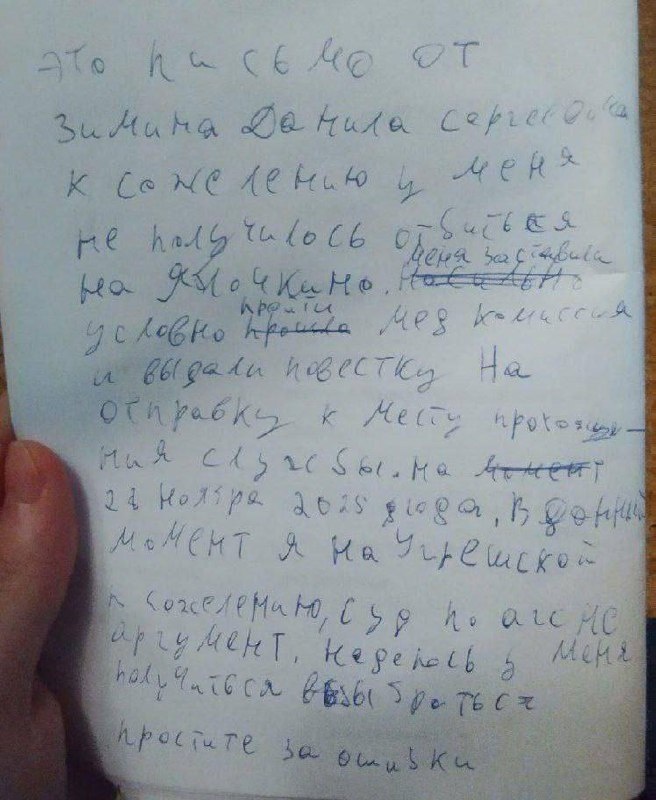 это письмо от
Зимина Данила сергеевича
к сожелению у меня
не получилось отбиться
меня заставили
на Яблочкино. насильно
пройти
условно прошла мед комиссия
и выдали повестку На
отправку к месту прохожде-
ния службы. на момент
28 ноября 2025 года, В данный
момент я на Угрешской
к сожелению, суд по агс не
аргумент. надеюсь у меня
получиться выбраться
простите за ошибки